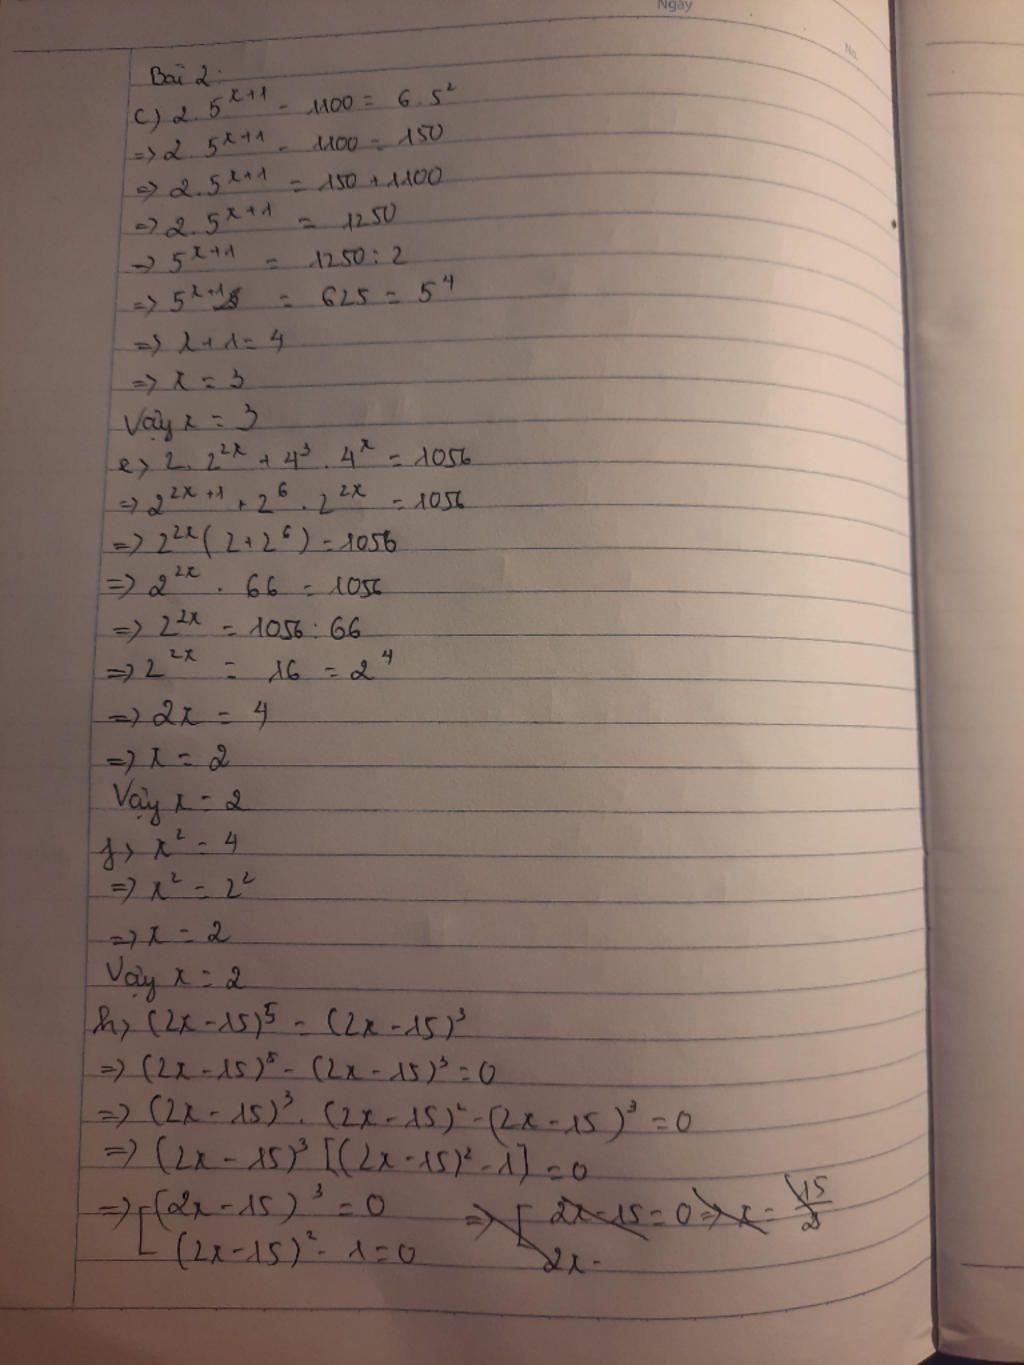 Ngày
No.
Bài 2:
c) 2.5^{x+1} - 1100 = 6.5²
=> 2 5^{x+1} - 1100 = 150
=> 2.5^{x+1} = 150 + 1100
=> 2.5^{x+1} = 1250
=> 5^{x+1} = 1250 : 2
=> 5^{x+1} = 625 = 5⁴
=> x + 1 = 4
=> x = 3
Vậy x = 3
e> 2. 2^{2x} + 4³ . 4^x = 1056
=> 2^{2x+1} + 2⁶ . 2^{2x} = 1056
=> 2^{2x} ( 2 + 2⁶ ) = 1056
=> 2^{2x} . 66 = 1056
=> 2^{2x} = 1056 : 66
=> 2^{2x} = 16 = 2⁴
=> 2x = 4
=> x = 2
Vậy x = 2
f> x² = 4
=> x² = 2²
=> x = 2
Vậy x = 2
h, (2x - 15)⁵ = (2x - 15)³
=> (2x - 15)⁵ - (2x - 15)³ = 0
=> (2x - 15)³ . (2x - 15)² - (2x - 15)³ = 0
=> (2x - 15)³ [(2x - 15)² - 1] = 0
=> [ (2x - 15)³ = 0 => [ 2x - 15 = 0 => x = 15/2
(2x - 15)² - 1 = 0 2x -